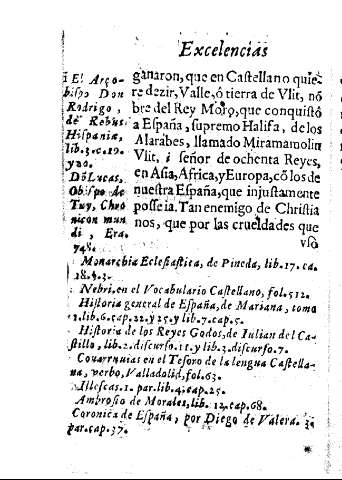 Excelencias
i El Arço-
bispo Don
Rodrigo,
de Rebus
Hispaniæ,
lib.3.c.19.
y 20.
Dō Lucas,
Obispo de
Tuy, Chro
nicon mun
di, Era.
748.
ganaron, que en Castellano quie-
re dezir, Valle, ó tierra de Vlit, nō
bre del Rey Moro, que conquistó
a España, supremo Halifa, de los
Alarabes, llamado Miramamolin
Vlit, i señor de ochenta Reyes,
en Asia, Africa, y Europa, cō los de
nuestra España, que injustamente
posseia. Tan enemigo de Christia
nos, que por las crueldades que
vsò
Monarchia Eclesiastica, de Pineda, lib.17.ca.
18.§.3.
Nebri. en el Vocabulario Castellano, fol.512.
Historia general de España, de Mariana, tomo
1.lib.6.cap.22.y 25.y lib.7.cap.5.
Historia de los Reyes Godos, de Iulian del Ca-
stillo, lib.2.discurso.11.y lib.3.discurso.7.
Couarruuias en el Tesoro de la lengua Castella-
na, verbo, Valladolid, fol.63.
Illescas.1. par.lib.4.cap.25.
Ambrosio de Morales, lib. 12.cap.68.
Coronica de España, por Diego de Valera. 3.
par.cap.37.